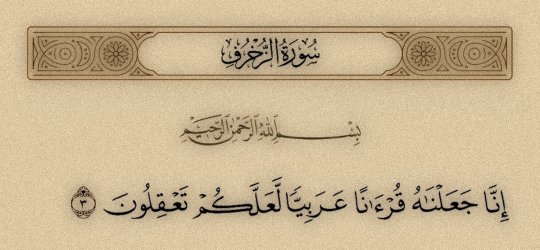 سُورَةُ الزُّخْرُفِ
بِسْمِ اللَّهِ الرَّحْمَٰنِ الرَّحِيمِ
إِنَّا جَعَلْنَٰهُ قُرْءَٰنًا عَرَبِيًّا لَّعَلَّكُمْ تَعْقِلُونَ ٣